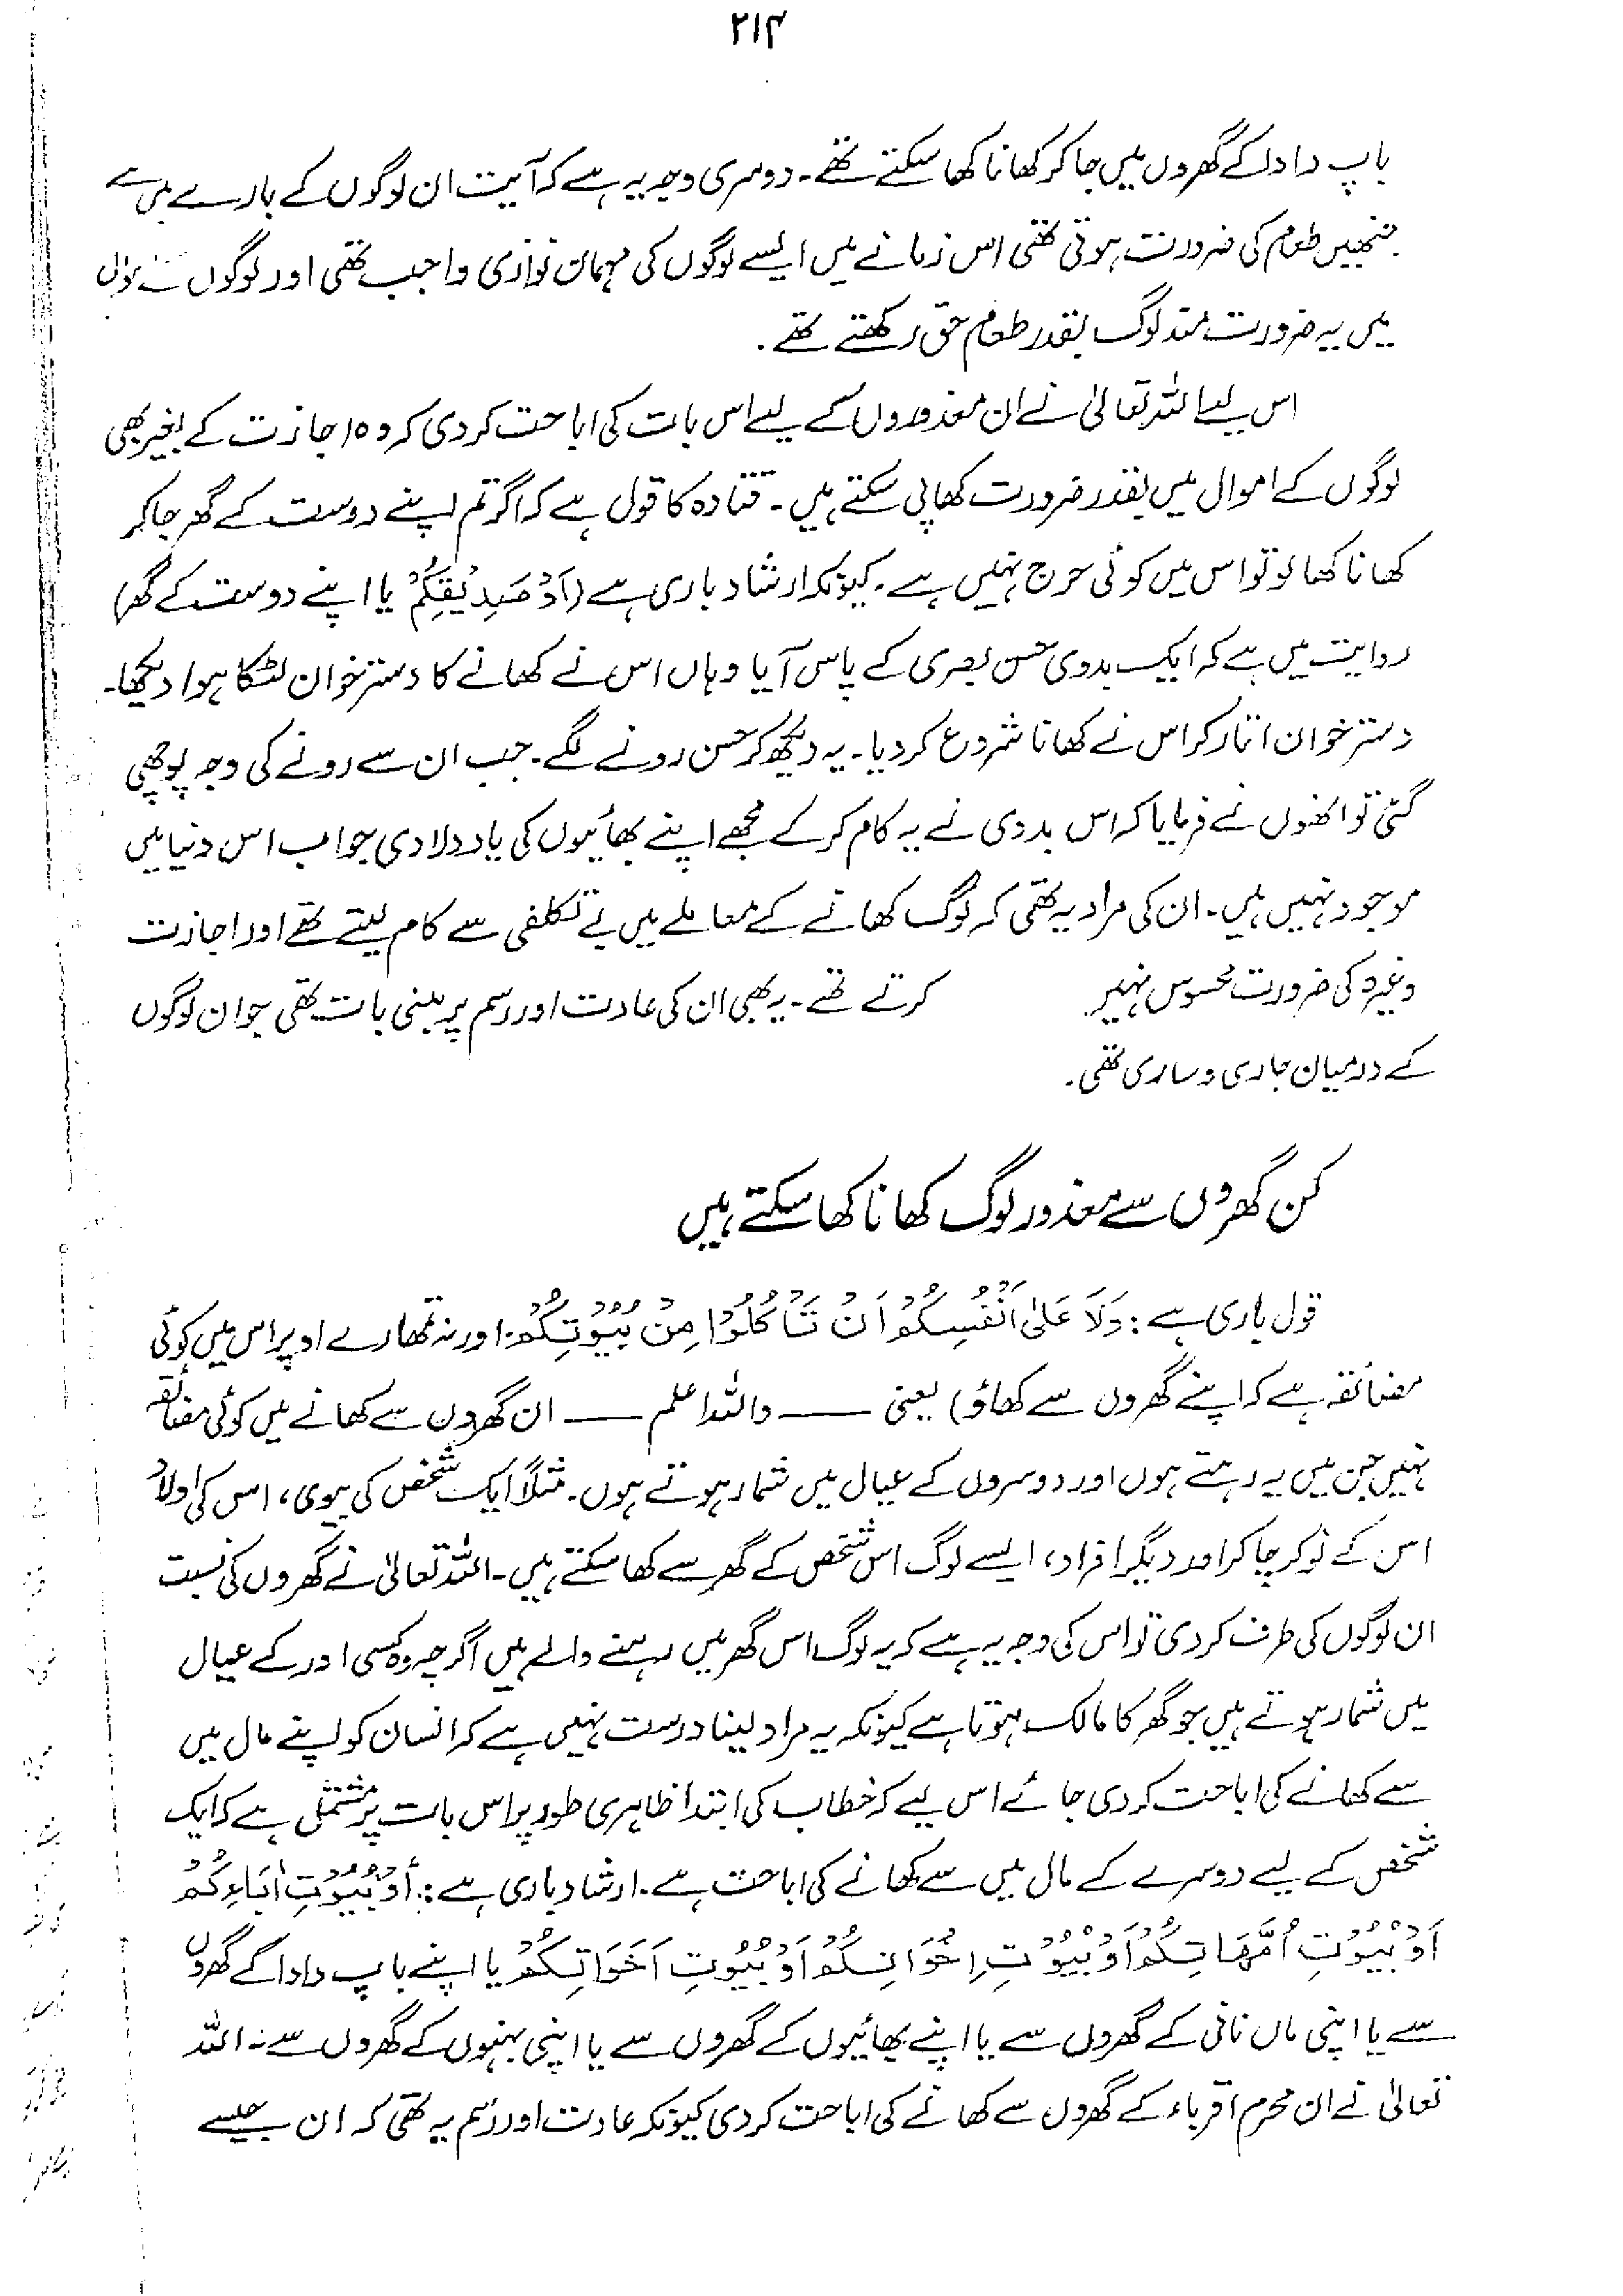 ۲۱۴
باپ دادا کے گھروں میں جا کر کھانا کھا سکتے تھے۔ دوسری وجہ یہ ہے کہ آیت ان لوگوں کے بارے میں ہے
جنھیں طعام کی ضرورت ہوتی تھی اس زمانے میں ایسے لوگوں کی مہمان نوازی واجب تھی اور لوگوں
میں یہ ضرورت مند لوگ بقدر طعام حق رکھتے تھے۔
اس لیے اللہ تعالیٰ نے ان معذوروں کے لیے اس بات کی اباحت کر دی کہ وہ اجازت کے بغیر بھی
لوگوں کے اموال میں بقدر ضرورت کھا پی سکتے ہیں۔ قتادہ کا قول ہے کہ اگر تم اپنے دوست کے گھر جا کر
کھانا کھا لو تو اس میں کوئی حرج نہیں ہے۔ کیونکہ ارشاد باری ہے (اَوْ صَدِیْقِکُمْ یا اپنے دوست کے گھر)
روایت میں ہے کہ ایک بدوی حسن بصری کے پاس آیا وہاں اس نے کھانے کا دسترخوان لٹکا ہوا دیکھا۔
دسترخوان اتار کر اس نے کھانا شروع کر دیا۔ یہ دیکھ کر حسن رونے لگے۔ جب ان سے رونے کی وجہ پوچھی
گئی تو انھوں نے فرمایا کہ اس بدوی نے یہ کام کر کے مجھے اپنے بھائیوں کی یاد دلا دی جو اب اس دنیا میں
موجود نہیں ہیں۔ ان کی مراد یہ تھی کہ لوگ کھانے کے معاملے میں بے تکلفی سے کام لیتے تھے اور اجازت
وغیرہ کی ضرورت محسوس نہیں کرتے تھے۔ یہ بھی ان کی عادت اور رسم پر مبنی بات تھی جو ان لوگوں
کے درمیان جاری و ساری تھی۔
کن گھروں سے معذور لوگ کھانا کھا سکتے ہیں
قول باری ہے: وَلَا عَلٰی اَنْفُسِکُمْ اَنْ تَاْکُلُوْا مِنْ بُیُوْتِکُمْ: اور نہ تمھارے اوپر اس میں کوئی
مضائقہ ہے کہ اپنے گھروں سے کھاؤ) یعنی —— واللہ اعلم —— ان گھروں سے کھانے میں کوئی مضائقہ
نہیں جن میں یہ رہتے ہوں اور دوسروں کے عیال میں شمار ہوتے ہوں۔ مثلاً ایک شخص کی بیوی، اس کی اولاد
اس کے نوکر چاکر اور دیگر افراد، ایسے لوگ اس شخص کے گھر سے کھا سکتے ہیں۔ اللہ تعالیٰ نے گھروں کی نسبت
ان لوگوں کی طرف کر دی تو اس کی وجہ یہ ہے کہ یہ لوگ اس گھر میں رہنے والے ہیں اگرچہ وہ کسی اور کے عیال
میں شمار ہوتے ہیں جو گھر کا مالک ہوتا ہے کیونکہ یہ مراد لینا درست نہیں ہے کہ انسان کو اپنے مال میں
سے کھانے کی اباحت کر دی جائے اس لیے کہ خطاب کی ابتدا ظاہری طور پر اس بات پر مشتمل ہے کہ ایک
شخص کے لیے دوسرے کے مال میں سے کھانے کی اباحت ہے۔ ارشاد باری ہے: أَوْ بُیُوْتِ اٰبَاءِکُمْ
اَوْ بُیُوْتِ اُمَّھَاتِکُمْ اَوْ بُیُوْتِ اِخْوَانِکُمْ اَوْ بُیُوْتِ اَخَوَاتِکُمْ یا اپنے باپ دادا کے گھروں
سے یا اپنی ماں نانی کے گھروں سے یا اپنے بھائیوں کے گھروں سے یا اپنی بہنوں کے گھروں سے۔ اللہ
تعالیٰ نے ان محرم اقرباء کے گھروں سے کھانے کی اباحت کر دی کیونکہ عادت اور رسم یہ تھی کہ ان جیسے